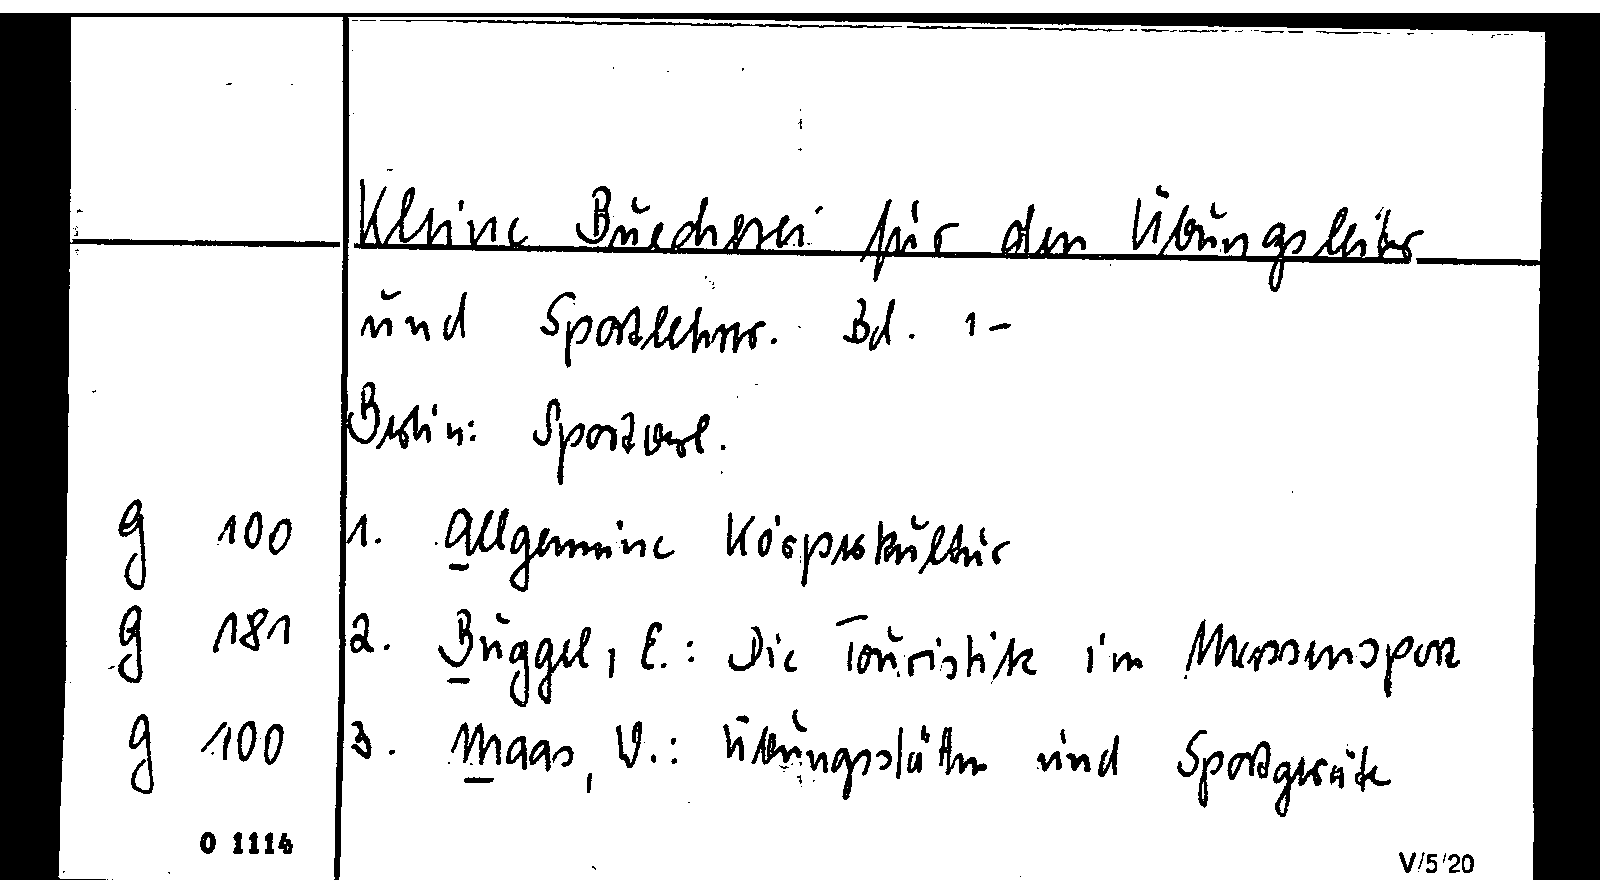 Kleine Buecherei für den Übungsleiter
und Sportlehrer. Bd. 1-
Berlin: Sportverl.
g 100 1. Allgemeine Körperkultur
g 181 2. Buggel, E.: Die Touristik im Massensport
g 100 3. Maas, W.: Übungsstätten und Sportgeräte
O 1114
V/5/20